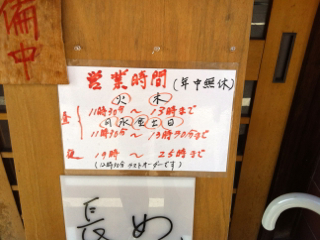 備中
営業時間(年中無休)
火 木
昼 11時30分〜13時まで
月水金土日
11時30分〜13時30分まで
夜 19時〜25時まで
(ラストオーダーです)
長め